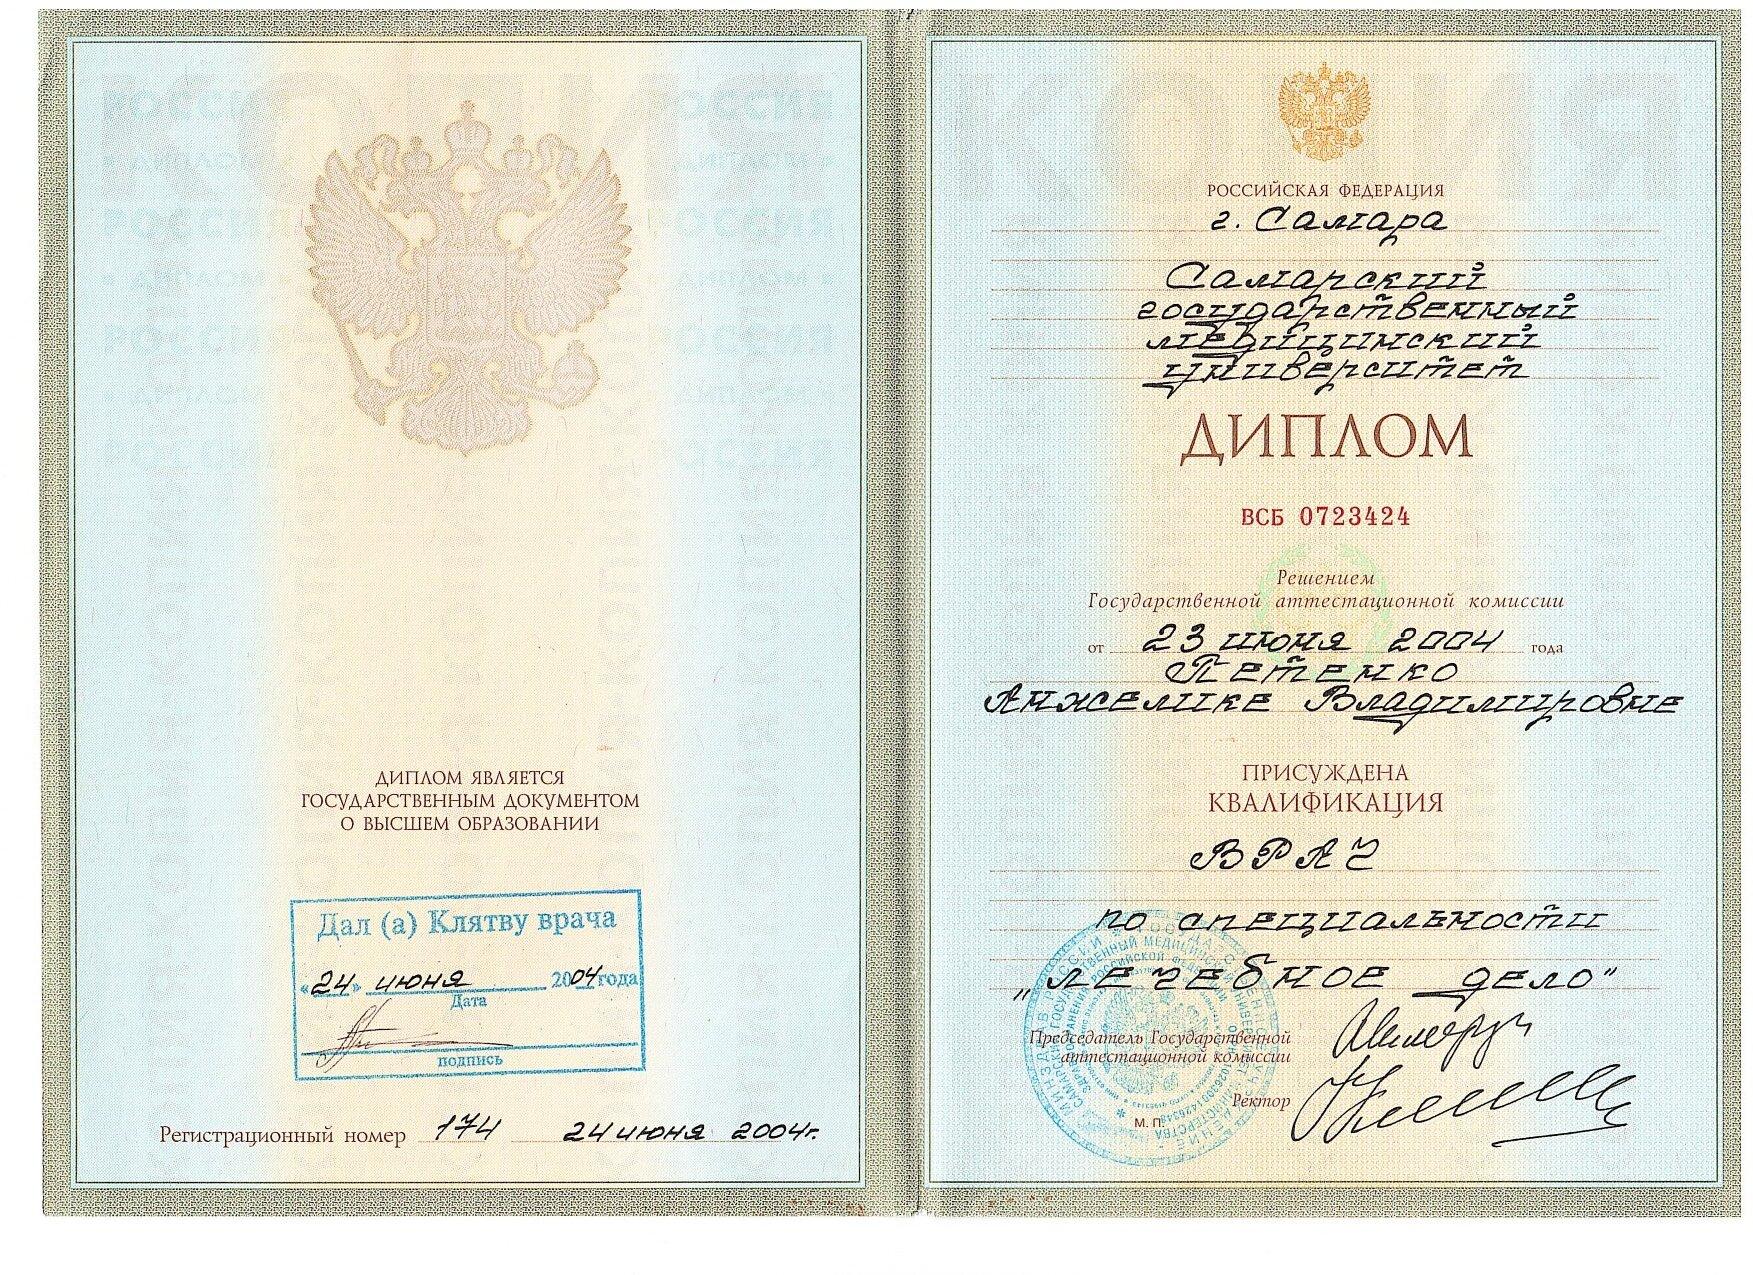 ДИПЛОМ ЯВЛЯЕТСЯ
ГОСУДАРСТВЕННЫМ ДОКУМЕНТОМ
О ВЫСШЕМ ОБРАЗОВАНИИ
Дал (а) Клятву врача
«24» июня 2004 года
Дата
подпись
Регистрационный номер 174 24 июня 2004г.
КОПИЯ
РОССИЙСКАЯ ФЕДЕРАЦИЯ
г. Самара
Самарский
государственный
медицинский
университет
ДИПЛОМ
ВСБ 0723424
Решением
Государственной аттестационной комиссии
от 23 июня 2004 года
Петенко
Анжелике Владимировне
ПРИСУЖДЕНА
КВАЛИФИКАЦИЯ
ВРАЧ
по специальности
„лечебное дело"
Председатель Государственной
аттестационной комиссии
Ректор
М. П.